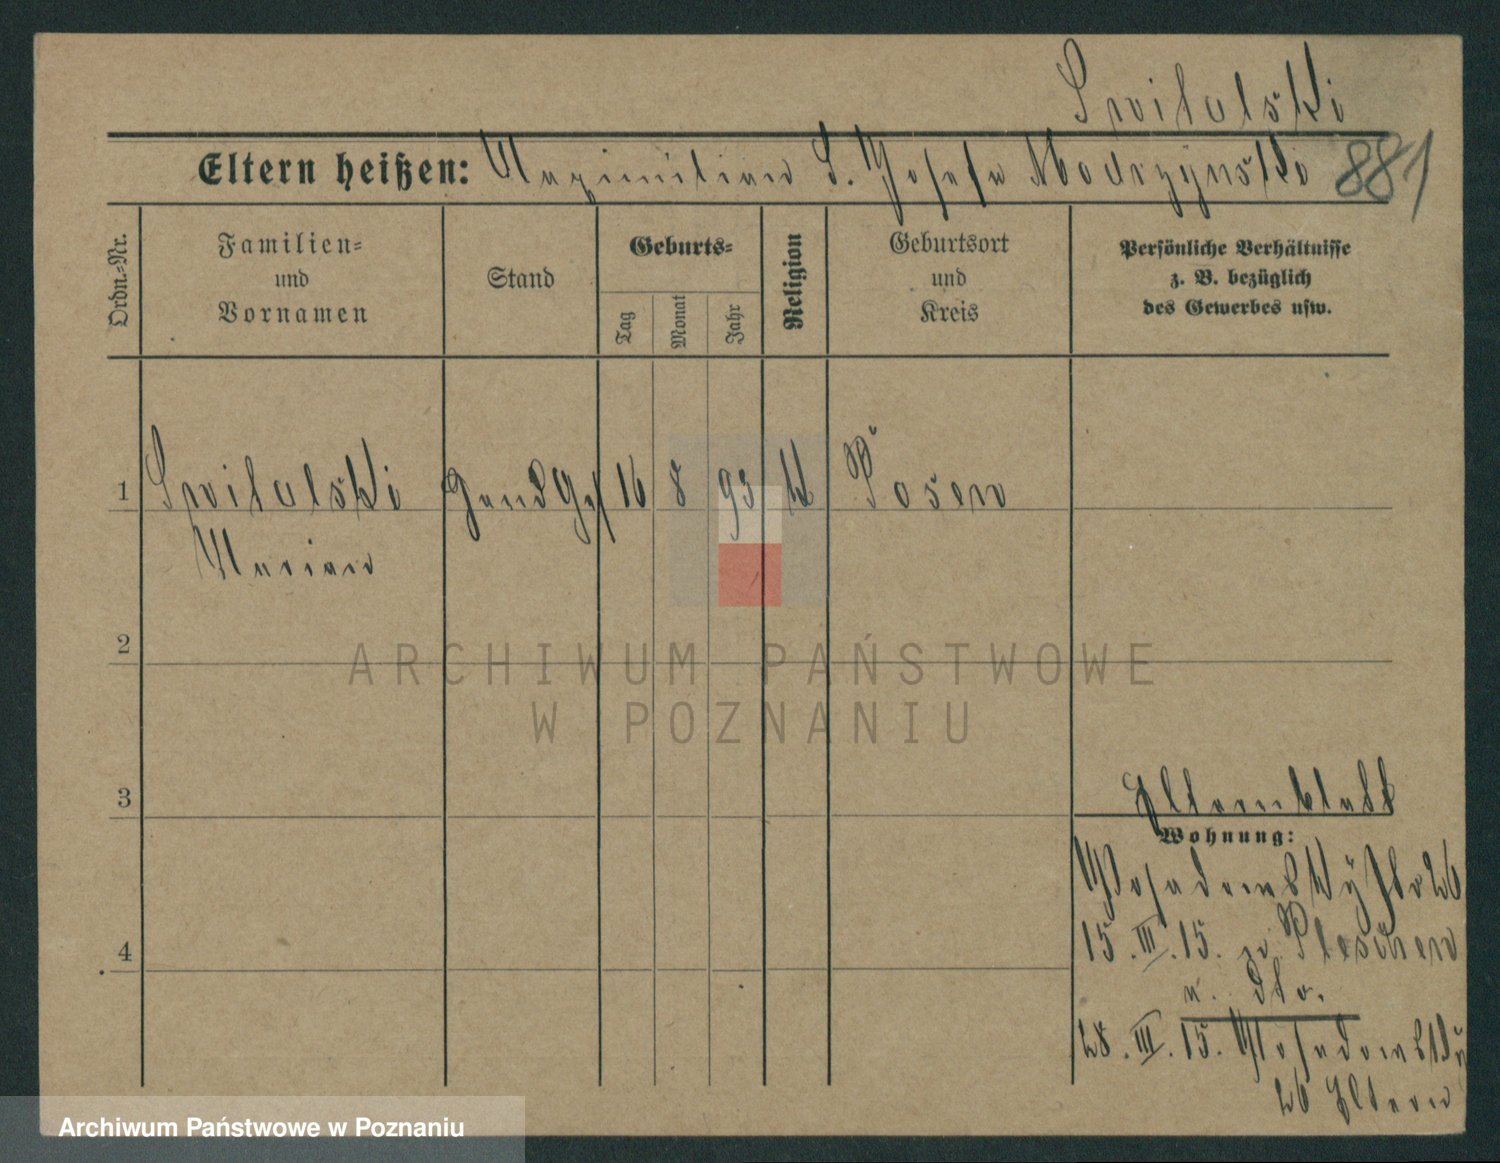 Switalski
Eltern heißen: Maximilian S. Josefa Modrzynski 881
Ordn.-Nr.
Familien-
und
Vornamen
Stand
Geburts-
Tag
Monat
Jahr
Religion
Geburtsort
und
Kreis
Persönliche Verhältnisse
z. B. bezüglich
des Gewerbes usw.
1 Switalski 16 8 93 k Posen
Marian
2
ARCHIWUM PAŃSTWOWE
W POZNANIU
3
Elternblatt
Wohnung:
26
15. III. 15. Pleschen
4
dto.
28. III. 15.
26 Eltern
Archiwum Państwowe w Poznaniu